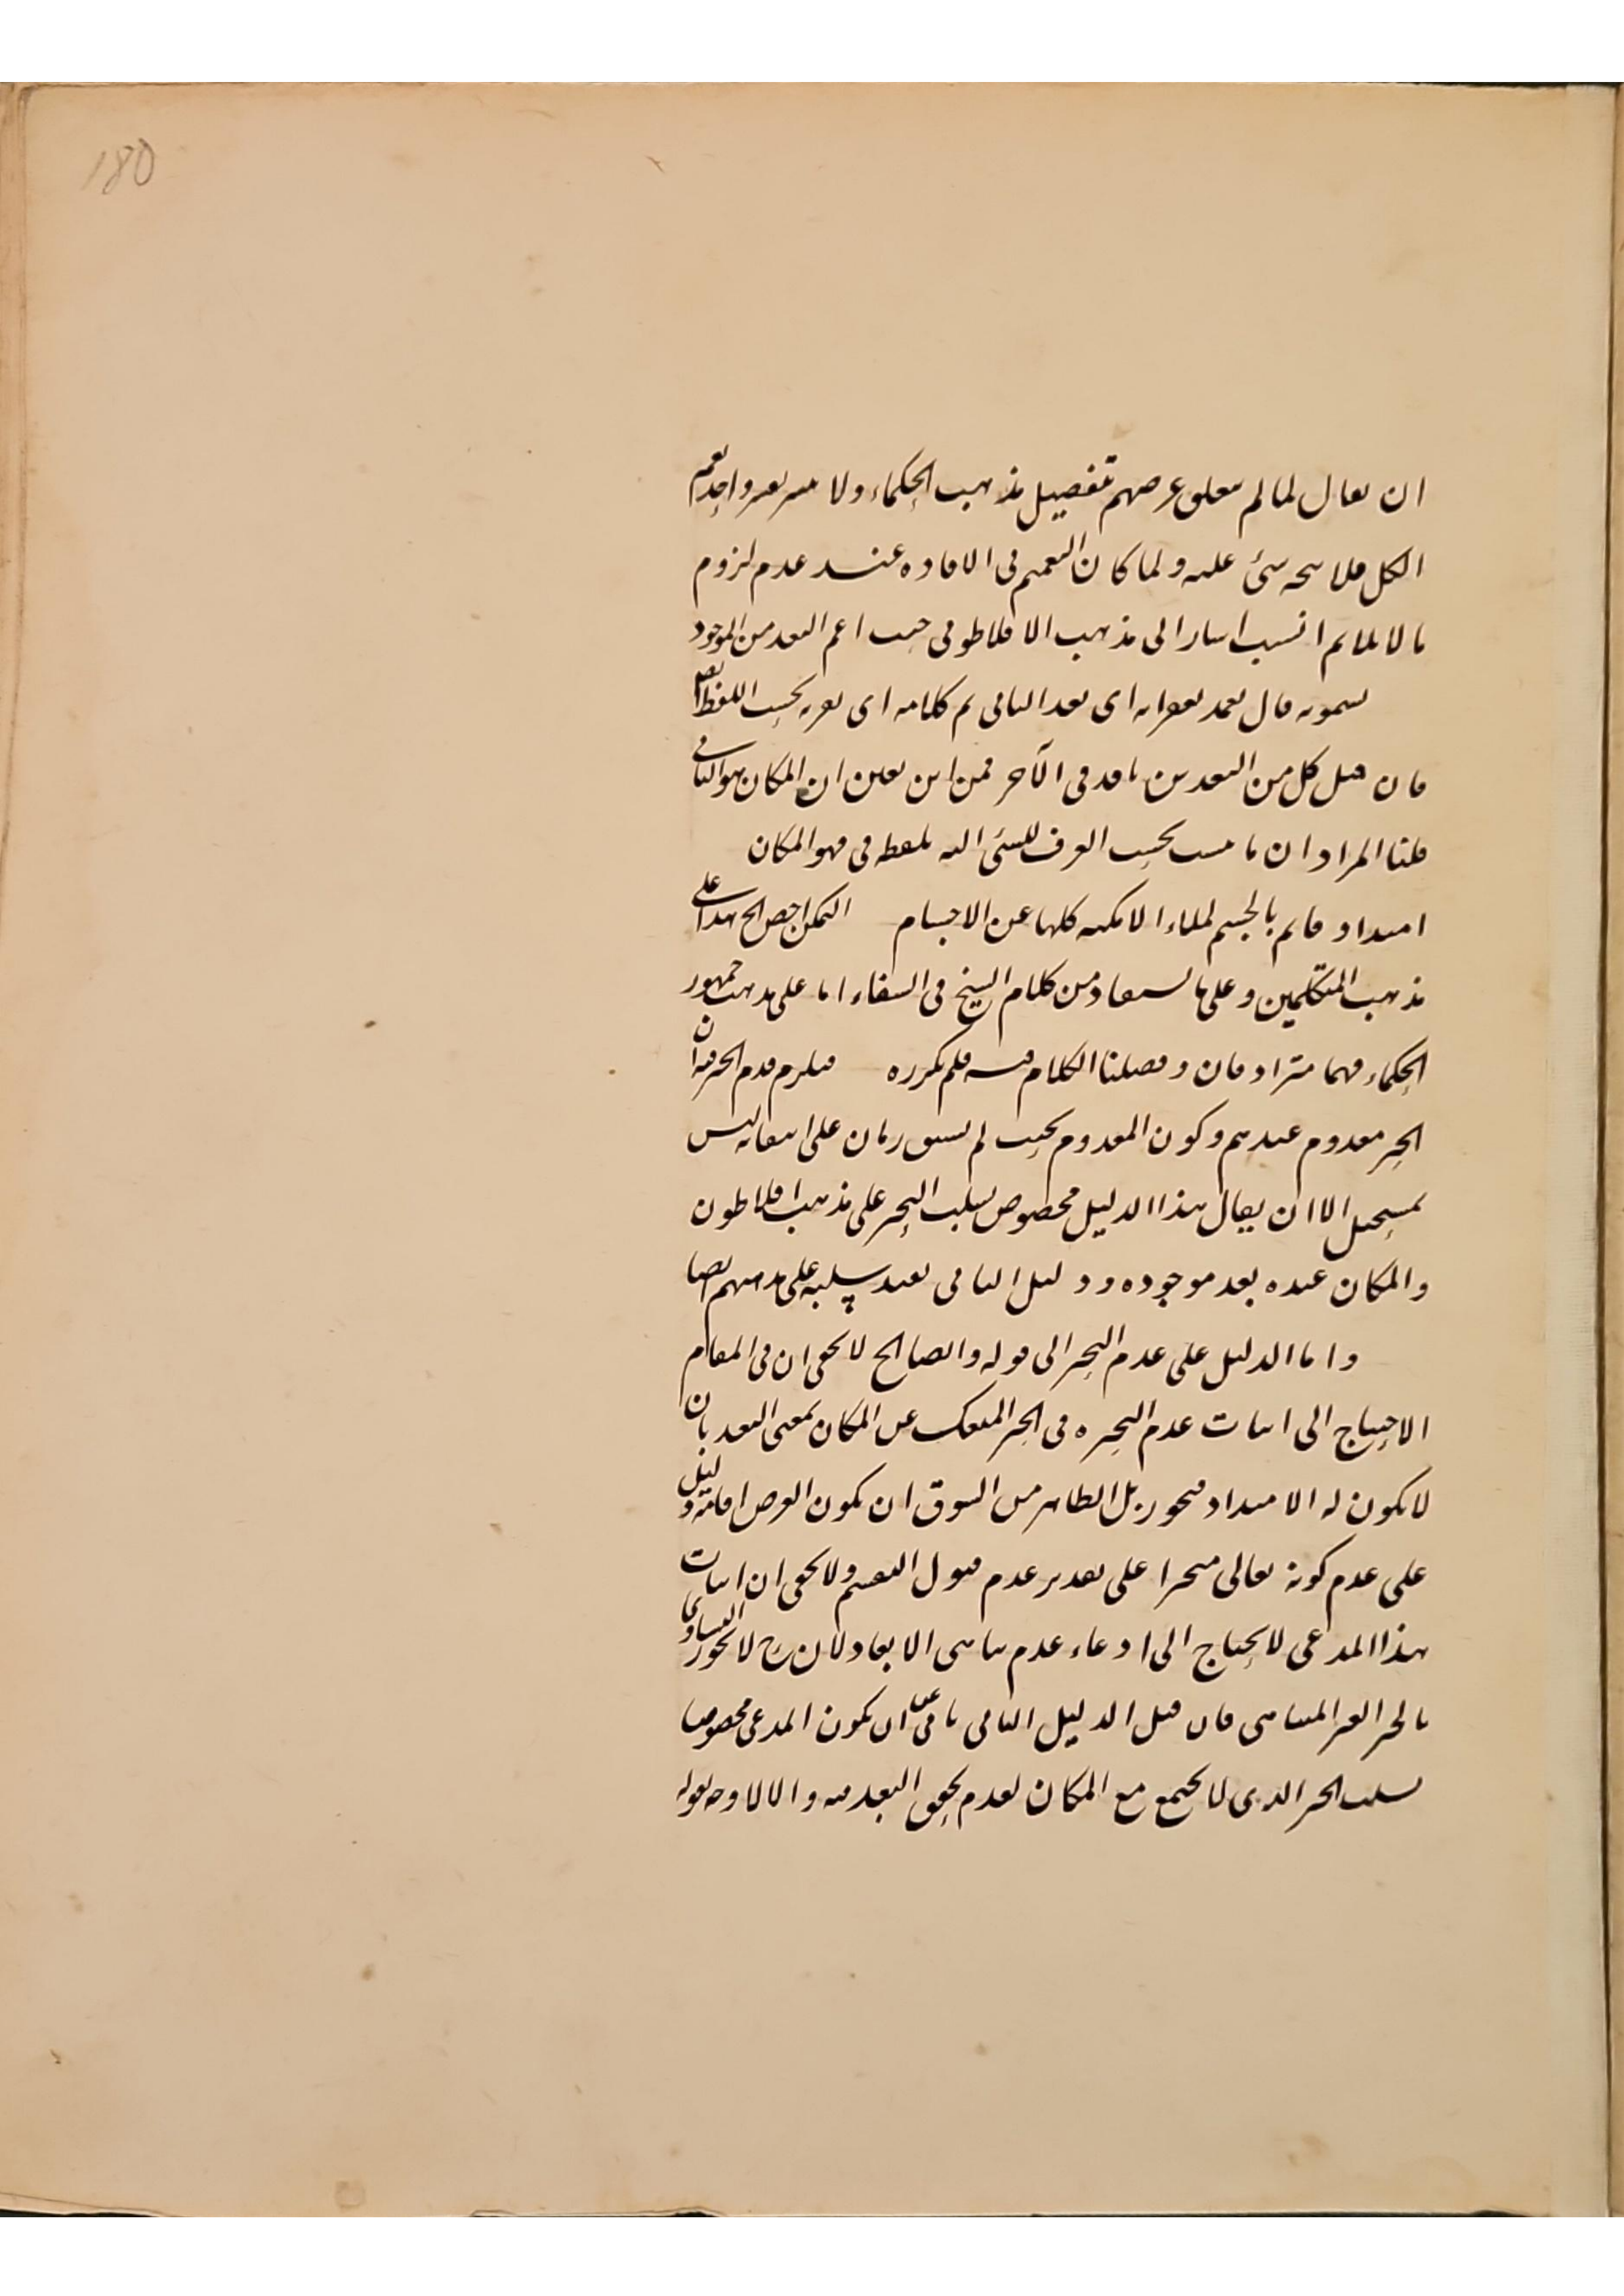 180
ان يقال لما لم يتعلق غرضهم بتفصيل مذهب الحكماء ولا تعريف واحد يعم
الكل فلا يتجه شئ عليه ولما كان التعميم فى الافادة عند عدم لزوم
ما لا يلايم انسب اشار الى مذهب الافلاطونى حيث اعم البعد من الموجود
قال بعد اى بعد الثانى كلامه اى بحسب اللفظ
فان قيل كل من البعدين نافذ فى الآخر فمن اين تعين ان المكان هو الثانى
قلنا المراد ان ما ينسب بحسب العرف للشئ اليه بلفظه فى فهو المكان
امتداد قائم بالجسم لملاء الامكنه كلها عن الاجسام التمكن اخص الخ هذا على
مذهب المتكلمين وعلى ما يستفاد من كلام الشيخ فى الشفاء اما على مذهب جمهور
الحكماء فهما مترادفان وفصلنا الكلام فيه فلم نكرره فيلزم قدم الحيز فيه ان
الحيز معدوم عندهم وكون المعدوم بحيث لم يسبق زمان على انتفائه ليس
بمستحيل الا ان يقال هذا الدليل مخصوص بسلب التحيز على مذهب افلاطون
والمكان عنده بعد موجوده ودليل الثانى يفيد سلبه على مذهبهم ايضا
واما الدليل على عدم التحيز الى قوله وايضا الخ لا يخفى ان فى المقام
الاحتياج الى اثبات عدم التحيزه فى الحيز المنفك عن المكان بمعنى البعد بان
لا يكون له الامتداد فيجوز بل الظاهر من السوق ان يكون الغرض اقامة دليل
على عدم كونه تعالى متحيزا على تقدير عدم قبول التقسيم ولا يخفى ان اثبات
هذا المدعى لا يحتاج الى ادعاء عدم تناهى الابعاد لان ح لا يجوز التساوى
بالحيز الغير المتناهى فان قيل الدليل الثانى ان يكون المدعى مخصوصا
بسلب الحيز الذى لا يجتمع مع المكان لعدم تحقق البعد فيه والا لا وجه لقوله